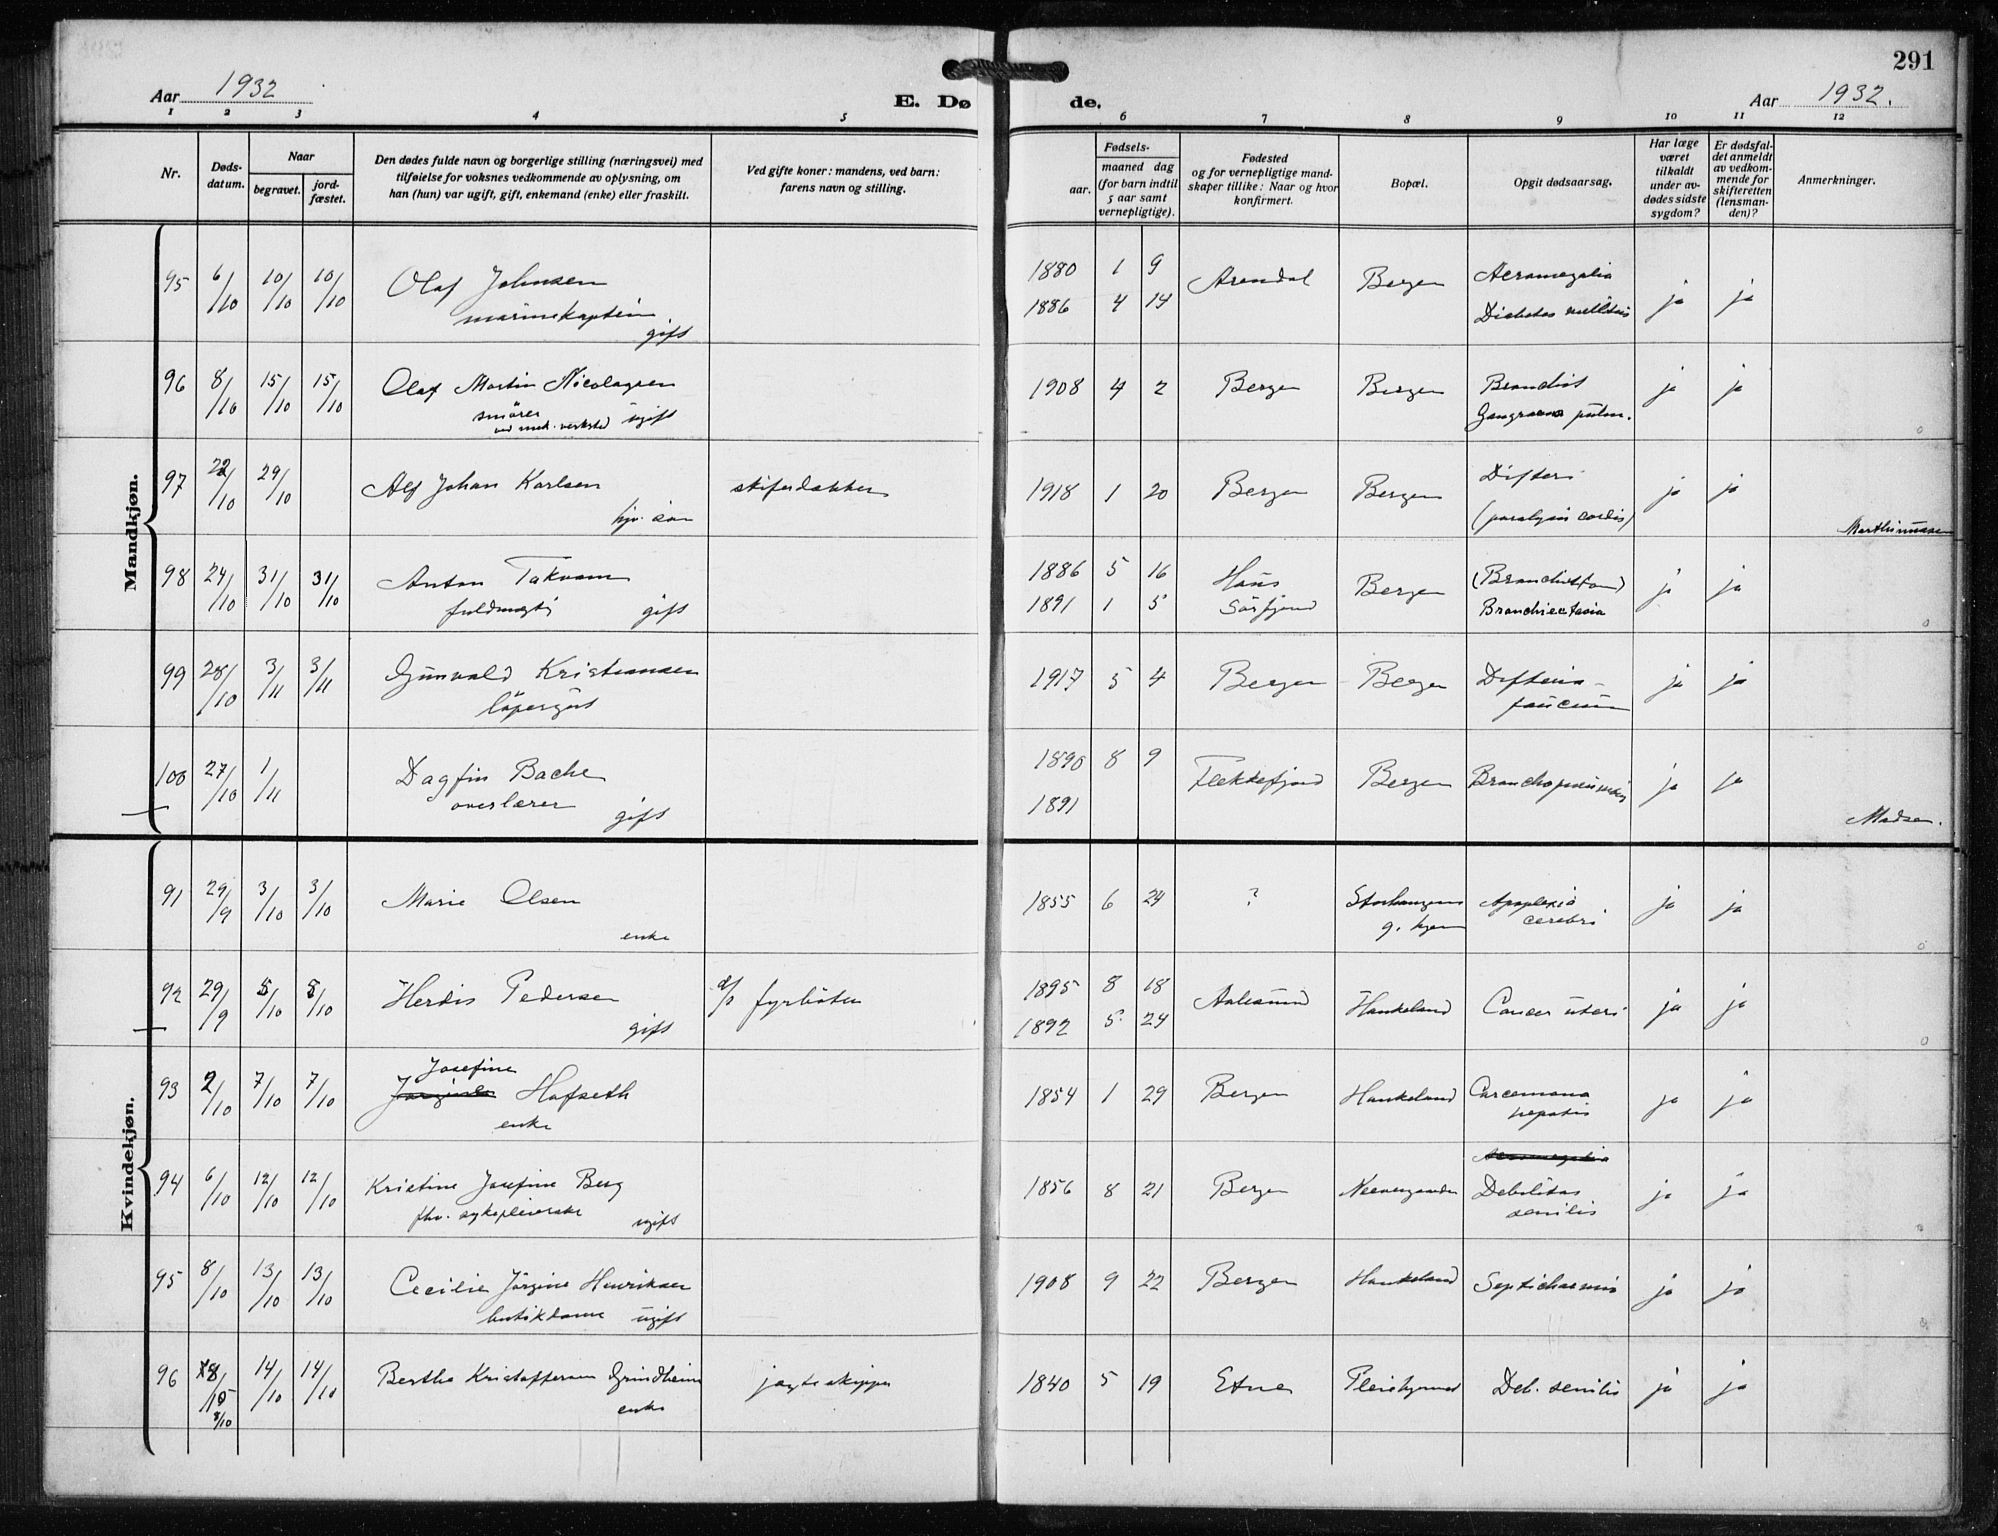 291
Aar 1932
E. Dø de.
Aar 1932.
1 2 3 4 5 6 7 8 9 10 11 12
Nr.
Døds-
datum.
Naar
begravet.
jord-
fæstet.
Den dødes fulde navn og borgerlige stilling (næringsvei) med
tilføielse for voksnes vedkommende av oplysning, om
han (hun) var ugift, gift, enkemand (enke) eller fraskilt.
Ved gifte koner: mandens, ved barn:
farens navn og stilling.
Fødsels-
aar.
maaned dag
(for barn indtil
5 aar samt
vernepligtige).
Fødested
og for vernepligtige mand-
skaper tillike: Naar og hvor
konfirmert.
Bopæl.
Opgit dødsaarsag.
Har læge
været
tilkaldt
under av-
dødes sidste
sygdom?
Er dødsfal-
det anmeldt
av vedkom-
mende for
skifteretten
(lensman-
den)?
Anmerkninger.
Mandkjøn.
95 6/10 10/10 10/10 Olaf Johnsen 1880 1 9 Arendal Bergen Acromegalia ja ja
marinekaptein 1886 4 14 Diabetes mellitus
gift
96 8/10 15/10 15/10 Olaf Martin Nicolaysen 1908 4 2 Bergen Bergen Bronchit ja ja
smører
ved mek. verksted ugift Gangraena pulm.
97 22/10 29/10 Alf Johan Karlsen skiferdækker 1918 1 20 Bergen Bergen Difteri ja ja
hjv. søn (paralysis cordis) Marthinussen
98 24/10 31/10 31/10 Anton Takvam 1886 5 16 Haus Bergen ja ja
fuldmægtig gift 1891 1 5 Sørfjord Bronchiectasia
99 28/10 3/11 3/11 Gunvald Kristiansen 1917 5 4 Bergen Bergen Difteria ja ja
løpergut faucium
100 27/10 1/11 Dagfin Bache 1890 8 9 Flekkefjord Bergen Bronchopneumoni ja ja
overlærer 1891
gift Madsen.
Kvindekjøn.
91 29/9 3/10 3/10 Marie Olsen 1855 6 24 ? Storhaugens Apoplexia ja ja
enke g. hjem cerebri
92 29/9 5/10 8/10 Herdis Pedersen fyrbøter 1895 8 18 Aalesund Haukeland Cancer uteri ja ja
gift 1892 5 24
Josefine
93 2/10 7/10 7/10 Hofseth 1854 1 29 Bergen Haukeland Carcemona ja ja
enke hepatis
Acromegalia
94 6/10 12/10 12/10 Kristine Josefine Berg 1856 8 21 Bergen Debilitas ja ja
fhv. sykepleierske ugift senilis
95 8/10 13/10 13/10 Cecilie Jørgine Henriksen 1908 9 22 Bergen Haukeland Septichaemia ja ja
butikdame ugift
96 8/10 14/10 14/10 Berthe Kristoffersen Grindheim jagteskipper 1840 5 19 Etne Pleiehjemmet Deb. senilis ja ja
enke